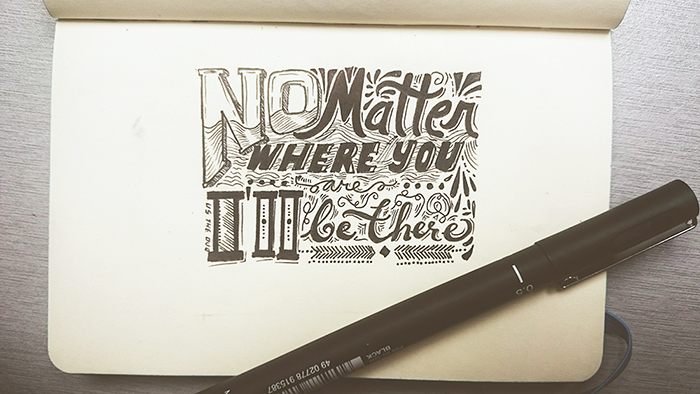 NO Matter
WHERE YOU
are
I'll
be there
US THE DUO
0.5
BLACK
49 02778 915387